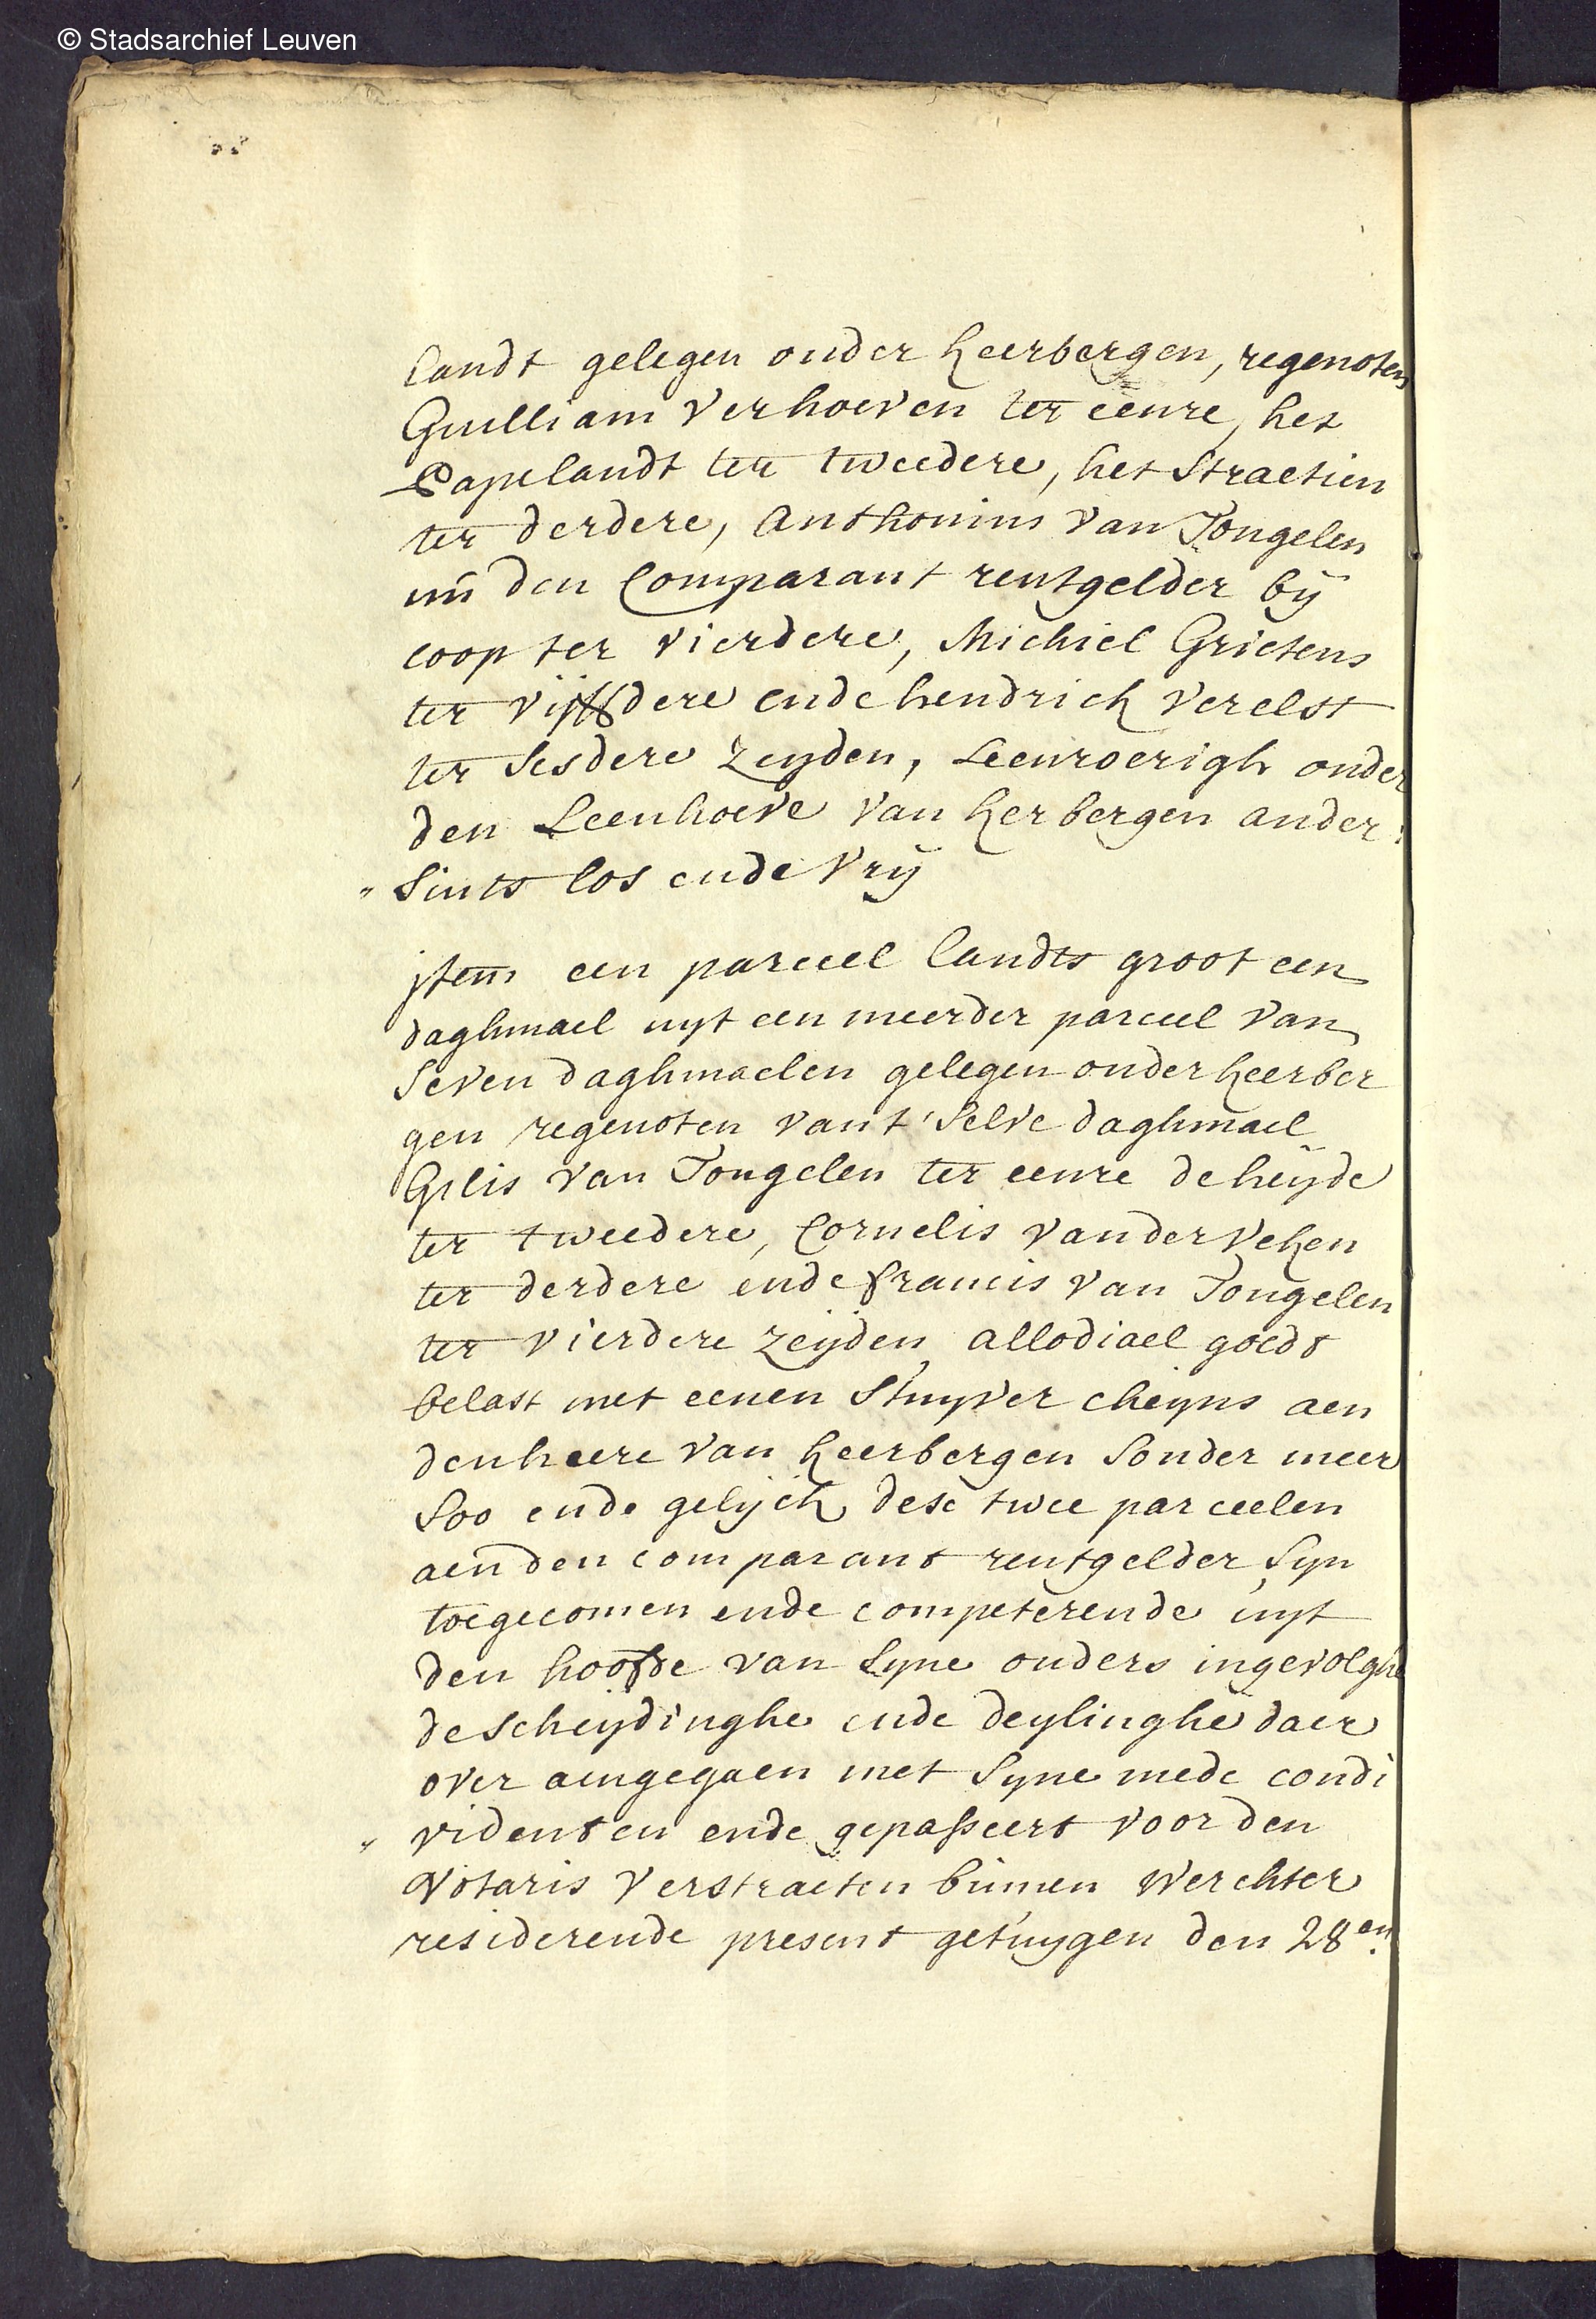 © Stadsarchief Leuven
landt gelegen onder heerbergen, regenoten
Guilliam Verhoeven ter eenre, het
Papelandt ter tweedere, het Straetien
ter derdere, Anthonius van Tongelen
nu den Comparant rentgelder bij
coop ter vierdere, Michiel Grietens
ter vijffdere ende hendrick Verelst
ter Sesdere Zeyden, Leenroerigh onder
den Leenhoeve van herbergen ander:
Sints los ende Vrij
jtem een parceel landts groot een
daghmael uyt een meerder parceel van
Seven daghmaelen gelegen onder heerber
gen regenoten vant' Selve daghmael
Gilis van Tongelen ter eenre de heyde
ter tweedere, Cornelis vander Veken
ter derdere ende francis van Tongelen
ter vierdere zeijden, allodiael goedt
belast met eenen Stuyver cheyns aen
den heere van heerbergen Sonder meer
Soo ende gelyck dese twee parceelen
aen den comparant rentgelder Syn
toegecomen ende competerende uyt
den hoofde van Syne ouders ingevolghe
de scheydinghe ende deylinghe daer
over aengegaen met Syne mede condi
videnten ende gepasseert voor den
Notaris Verstraeten binnen Werchter
residerende present getuygen den 28en